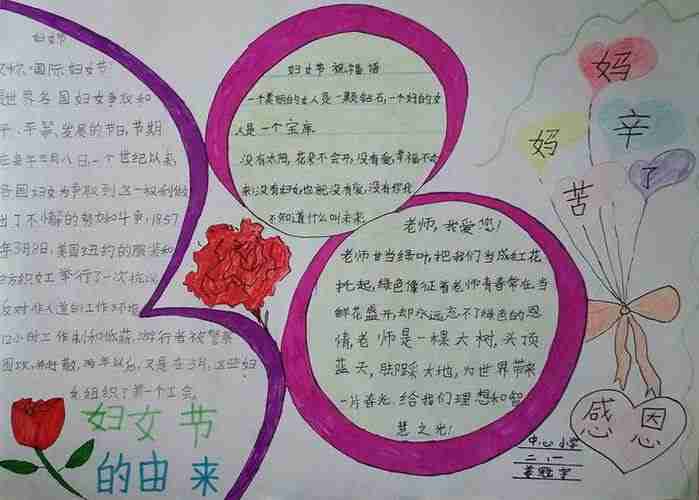 妇女节
又称"国际妇女节
是世界各国妇女争取和
平、平等、发展的节日,节期
在每年三月八日,一个世纪以来,
各国妇女为争取到这一权利做
出了不懈的努力和斗争,1857
年3月8日,美国纽约的服装和
纺织女工举行了一次抗议
反对非人道的工作环境
12小时工作制和低薪,游行者被警察
围攻,并赶散,两年以后,又是在3月,这些妇
女组织了第一个工会,
妇女节
的由来
妇女节祝福语
一个美丽的女人是一颗钻石,一个好的女
人是一个宝库
没有太阳,花朵不会开,没有爱,幸福不会
来;没有妇女,也就没有爱,没有母亲
不知道什么叫未来
老师,我爱您!
老师甘当绿叶,把我们当成红花
托起,绿色像征着老师有春常在,当
鲜花盛开,却永远忘不了绿色的恩
情,老师是一棵大树,头顶
蓝天,脚踩大地,为世界带来
一片春光,给我们理想和智
慧之光!
妈
妈
辛
苦
了
感恩
中心小学
二、一